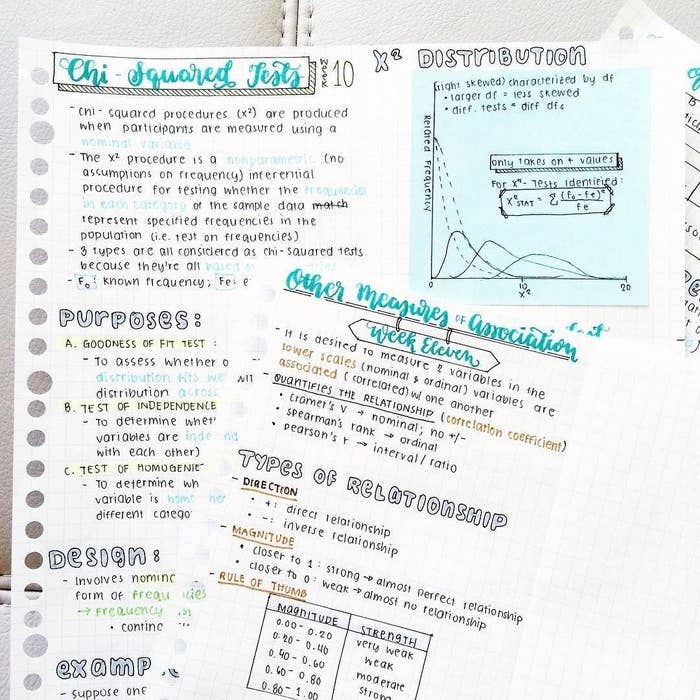 Chi-Squared Tests
WEEK 10
- Chi-squared procedures (X²) are produced
when participants are measured using a
nominal variable
- The X² procedure is a nonparametric (no
assumptions on frequency) inferential
procedure for testing whether the frequencies
in each category of the sample data match
represent specified frequencies in the
population (i.e. test on frequencies)
- 3 types are all considered as chi-squared tests
because they're all based
- Fo: known frequency; Fe: e
PURPOSES:
A. GOODNESS OF FIT TEST:
- To assess whether o
distribution fits we
distribution across
B. TEST OF INDEPENDENCE
- To determine whet
variables are inde
with each other)
C. TEST OF HOMOGENE
- To determine wh
variable is homo
different catego
DESIGN:
- Involves nominal
form of frequ
→ Frequency
• contin
EXAMP
- suppose one
X² DISTRIBUTION
(right skewed) characterized by df
• larger df = less skewed
• diff. tests = diff dfs
Related Frequency
only takes on + values
For X²-Tests Identified:
X²STAT = Σ (fo-fe)²
fe
0
10
20
X²
Other Measures of Association
Week Eleven
- It is desired to measure 2 variables in the
lower scales (nominal & ordinal) variables are
associated (correlated) w/ one another
- QUANTIFIES THE RELATIONSHIP (correlation coefficient)
• cramer's v → nominal; no +/-
• spearman's rank → ordinal
• pearson's r → interval/ratio
TYPES OF RELATIONSHIP
- DIRECTION
• +: direct relationship
• -: inverse relationship
- MAGNITUDE
• closer to 1: strong → almost perfect relationship
• closer to 0: weak → almost no relationship
- RULE OF THUMB
MAGNITUDE STRENGTH
0.00-0.20 very weak
0.20-0.40 weak
0.40-0.60 moderate
0.60-0.80 strong
0.80-1.00